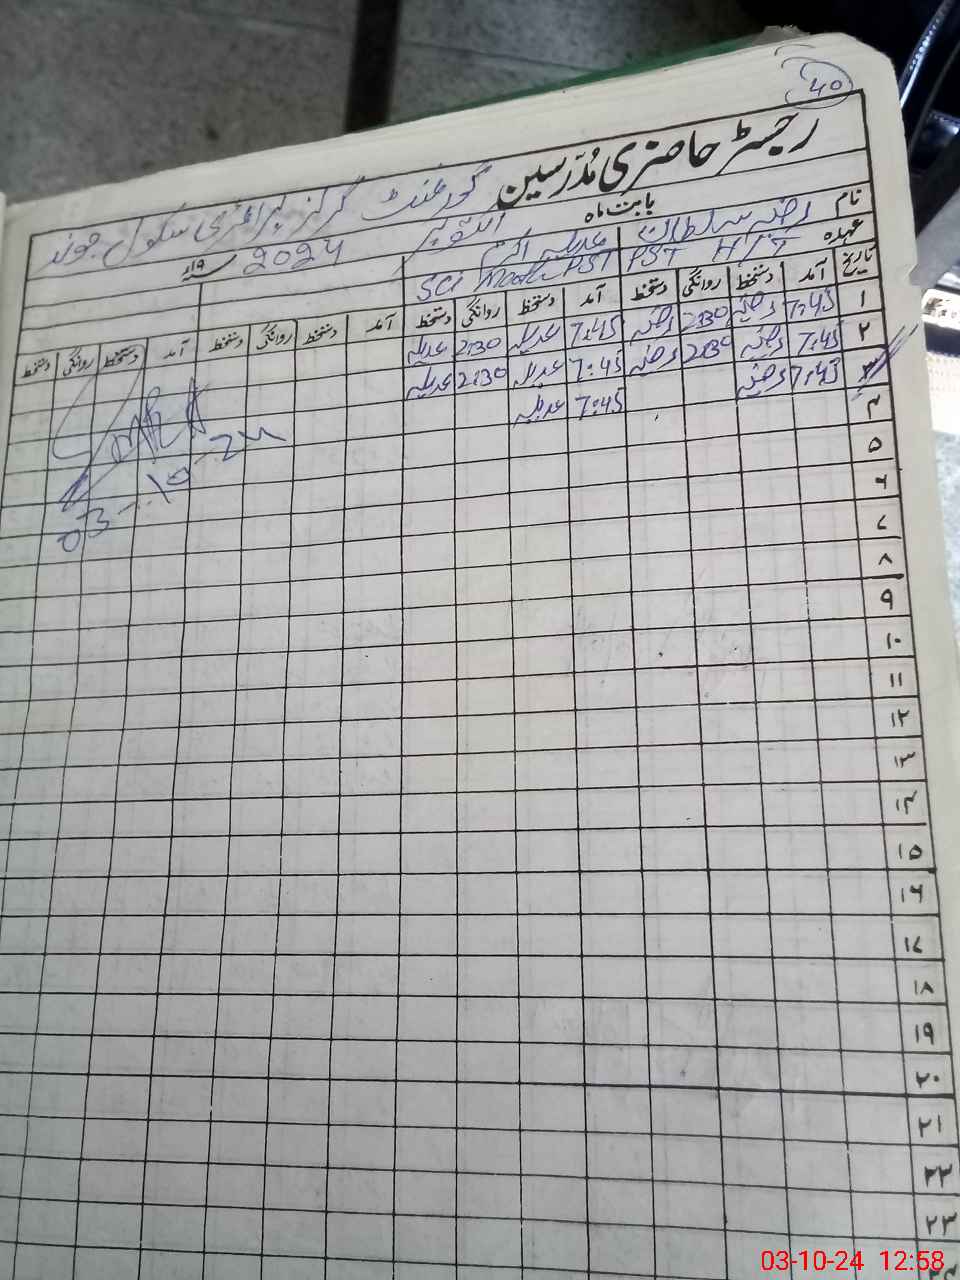 40
رجسٹر حاضری مُدّرسین گورنمنٹ گرلز پرائمری سکول
بابت ماہ اکتوبر 2024 ۱۹ء
نام رضیہ سلطانہ عدیلہ اکرم
عہدہ PST H/T Sci Math PST
تاریخ آمد دستخط روانگی دستخط آمد دستخط روانگی دستخط آمد دستخط روانگی دستخط آمد دستخط روانگی دستخط
۱ 7:45 رضیہ 2:30 رضیہ 7:45 عدیلہ 2:30 عدیلہ
۲ 7:45 رضیہ 2:30 رضیہ 7:45 عدیلہ 2:30 عدیلہ
۳ 7:45 رضیہ 7:45 عدیلہ
۴
۵
۶
۷
۸
۹
۱۰
۱۱
۱۲
۱۳
۱۴
۱۵
۱۶
۱۷
۱۸
۱۹
۲۰
۲۱
۲۲
۲۳
03-10-24
03-10-24 12:58